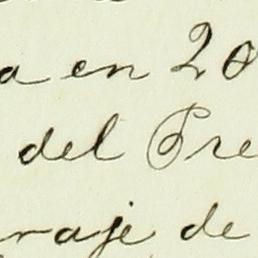 a en 20
del Pre
raje de